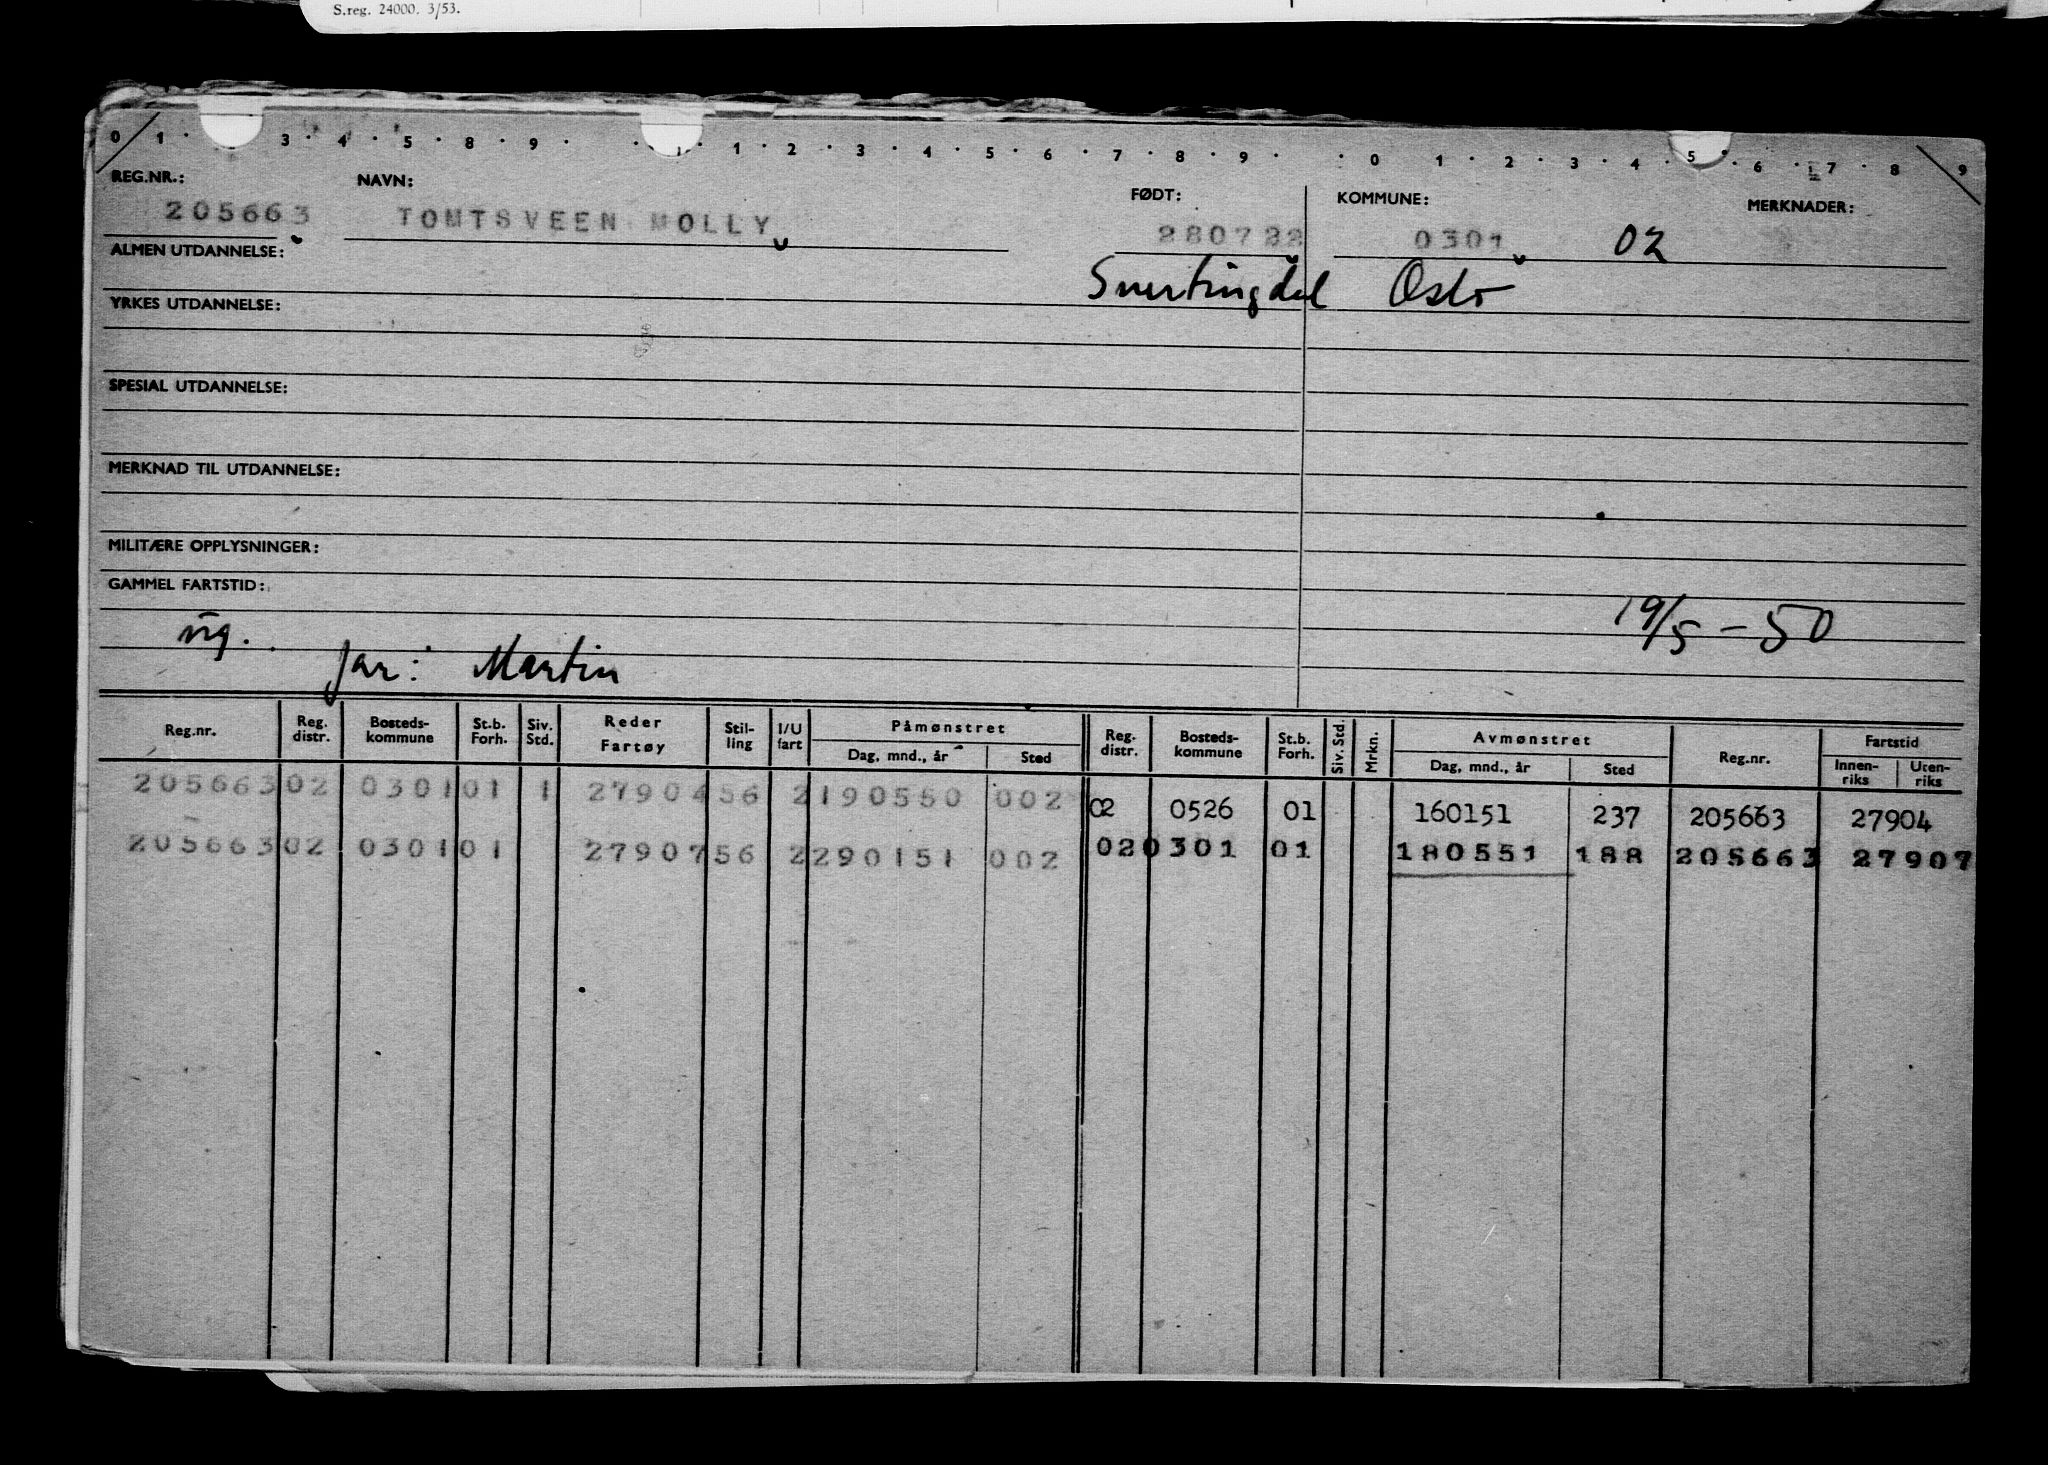 S.reg. 24000. 3/53.
0 1 · 3 · 4 · 5 · 8 · 9 · · 1 · 1 · 2 · 3 · 4 · 5 · 6 · 7 · 8 · 9 · · 0 · 1 · 2 · 3 · 4 · 5 · 6 · 7 · 8 · 9
REG.NR.: NAVN: FØDT: KOMMUNE: MERKNADER:
205663 TOMTSVEEN MOLLY 280722 0301 02
ALMEN UTDANNELSE:
Snertingdal Oslo
YRKES UTDANNELSE:
SPESIAL UTDANNELSE:
MERKNAD TIL UTDANNELSE:
MILITÆRE OPPLYSNINGER:
GAMMEL FARTSTID:
19/5-50
ug. far: Martin
Reg.nr. Reg. distr. Bosteds-kommune St.b. Forh. Siv. Std. Reder Fartøy Stil-ling I/U fart Påmønstret Dag, mnd., år Sted Reg. distr. Bosteds-kommune St.b. Forh. Siv. Std. Mrkn. Avmønstret Dag, mnd., år Sted Reg.nr. Fartstid Innen-riks Uten-riks
205663 02 0301 01 1 27904 56 2 190550 002 02 0526 01 160151 237 205663 27904
205663 02 0301 01 27907 56 2 290151 002 02 0301 01 180551 188 205663 27907